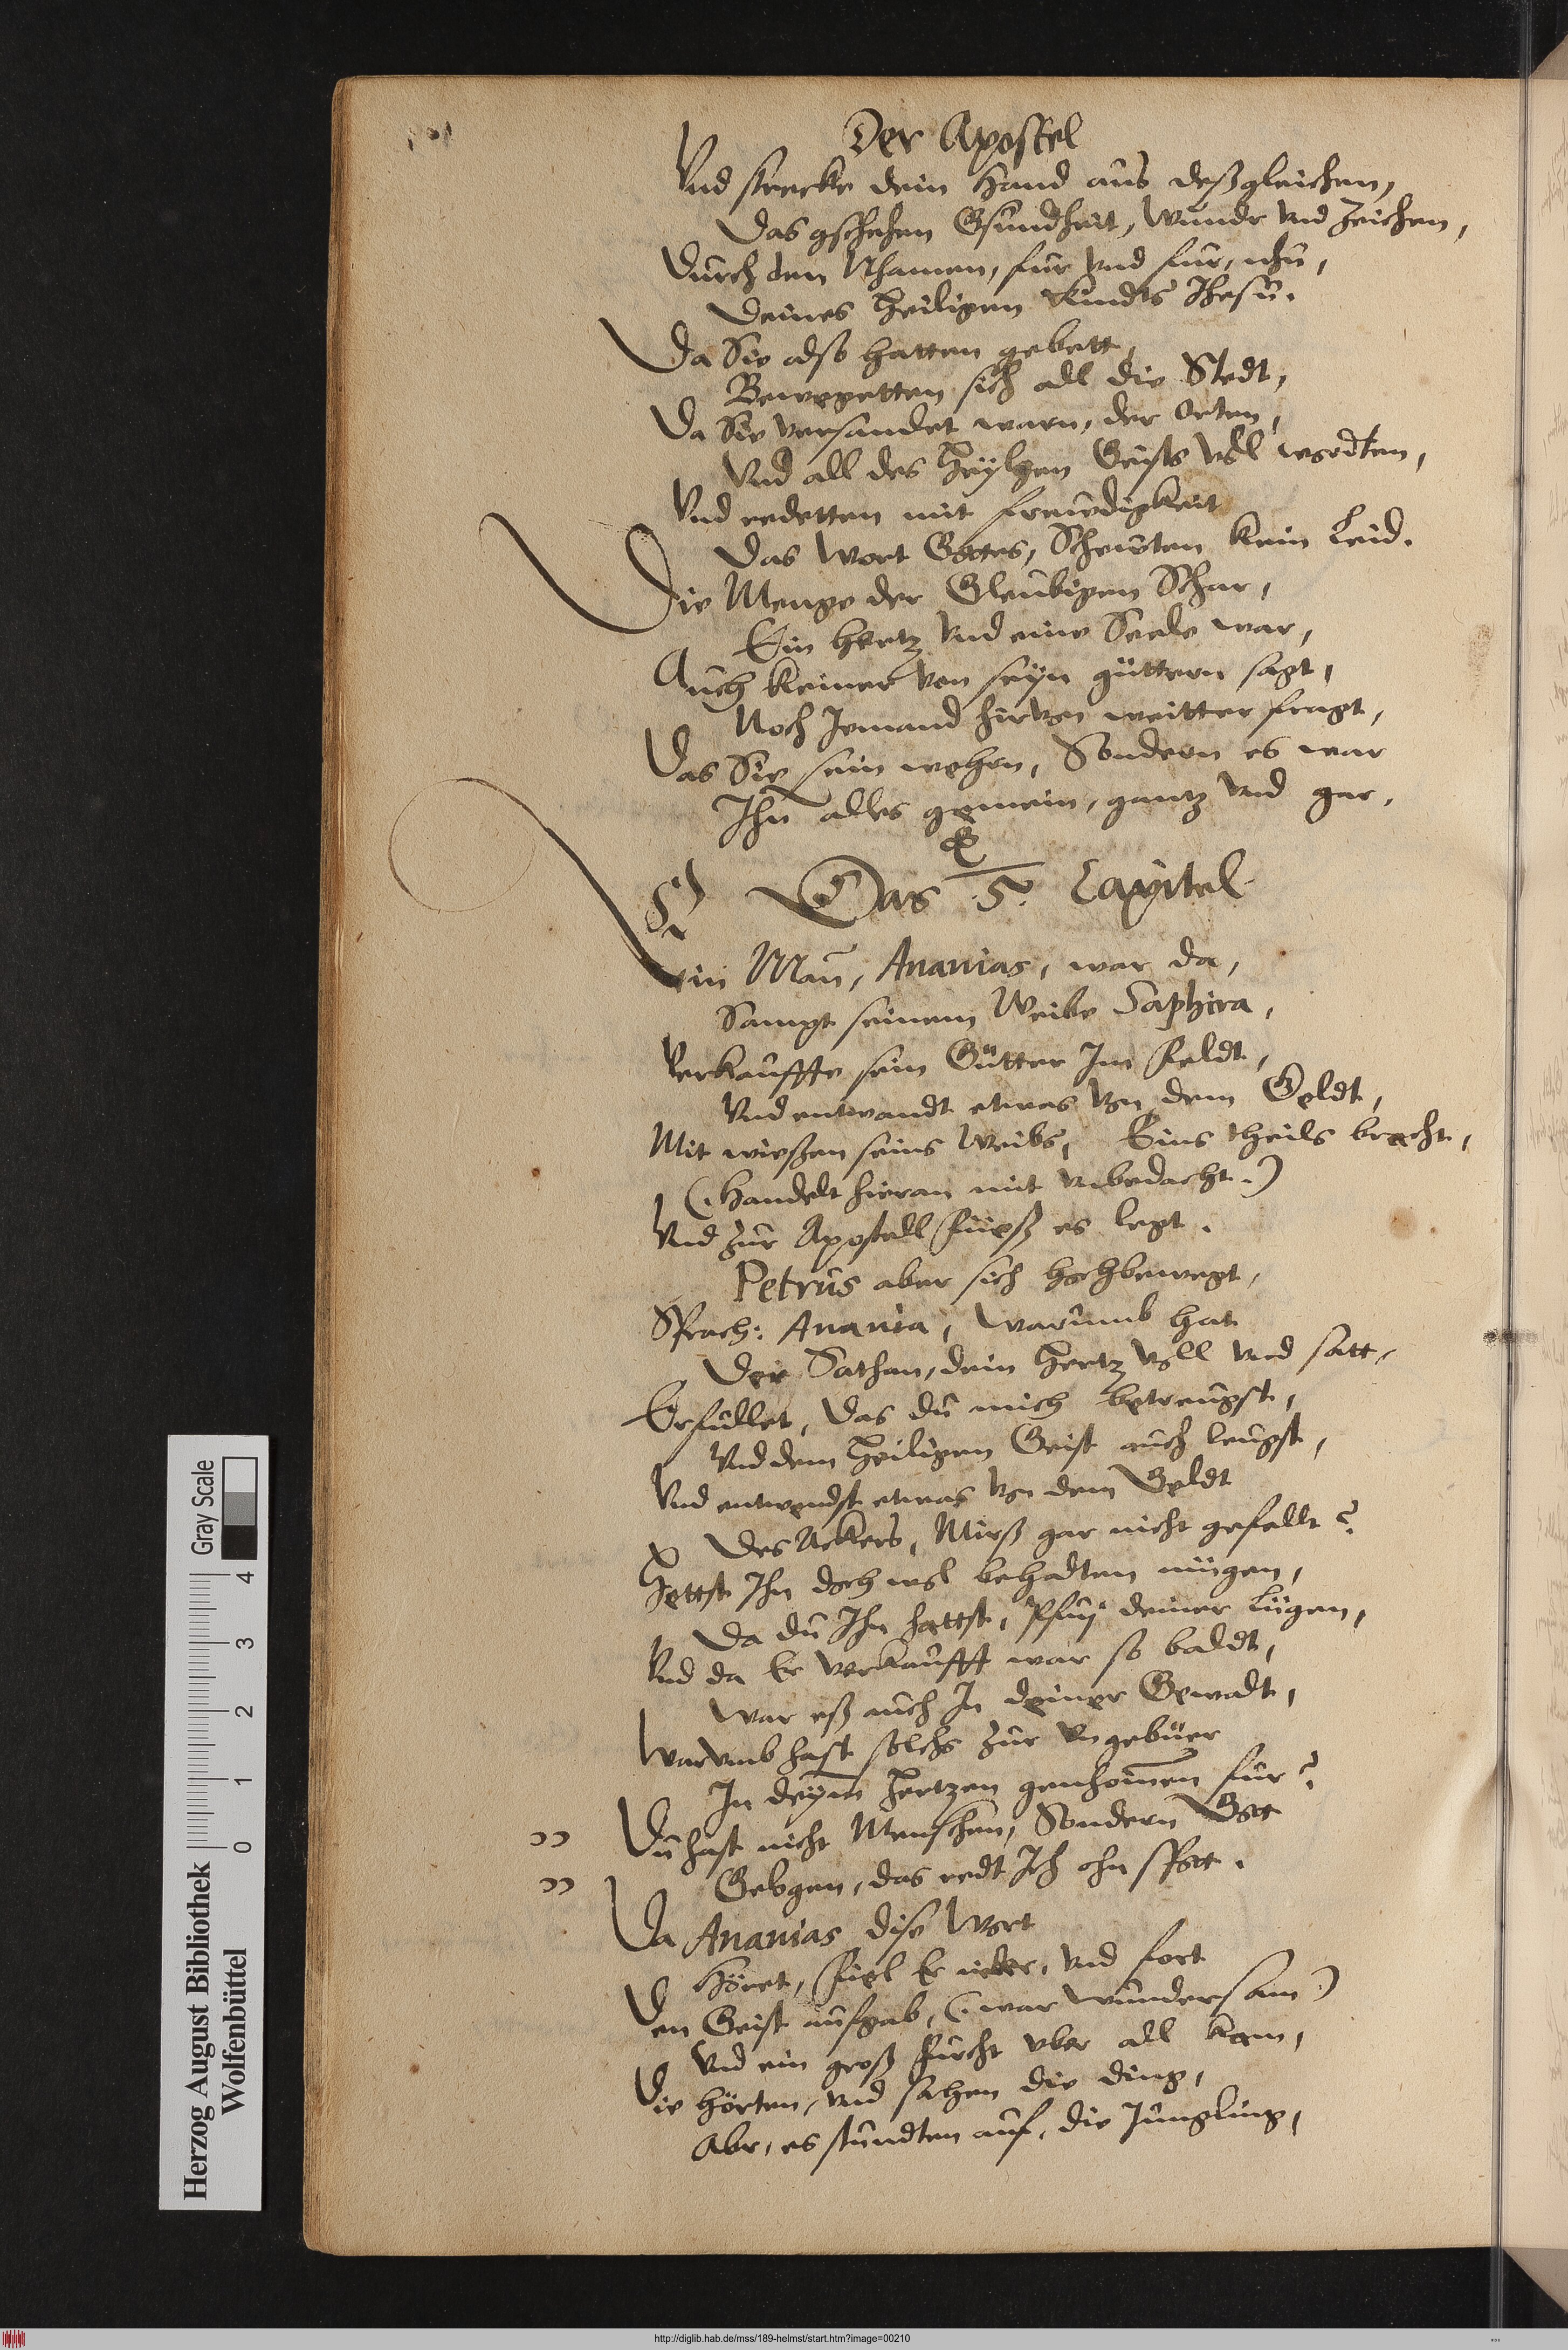 Der Apostel
Vnd strecke dein Hand aus deßgleichen,
Das gschehen Gsundheit, Wunder vnd Zeichen,
Durch den Nhamen, fur vnd fur, nhu,
Deines heiligen Kindts Jhesu.
Da Sie also hatten gebett,
Bewegetten sich all die Stedt,
Da Sie versamlet warn, der Orten,
Vnd all des Heylgen Geists vol wordten,
Vnd redetten mit freudigkeit
Das Wort Gottes, Scheuten kein Leid.
Die Menge der Gleubigen Schar,
Ein Hertz vnd eine Seele war,
Auch keiner von seyn güttern sagt,
Noch Jemand hirvon weitter fragt,
Das Sie sein wehrn, Sondern es war
Ihn alles gemein, gantz vnd gar.
Das 5. Capitel
Ein Man, Ananias, war da,
Sampt seinem Weibe Saphira,
Verkauffte sein Gütter Im Feldt,
Vnd entwandt etwas von dem Geldt,
Mit wießen seins Weibs, Eins theils bracht,
(Handelt hieran mit vnbedacht.)
Vnd zur Apostell Füeß es legt.
Petrus aber sich hoch bewegt,
Sprach: Anania, Warumb hat
Der Sathan, dein Hertz voll vnd satt,
Erfüllet, das du mich betreugst,
Vnd dem Heiligen Geist auch leugst,
Vnd entwendst etwas von dem Geldt
Des Ackers, Mirß gar nicht gefellt?
Hettst Ihn doch wol behalten mügen,
Da du Ihn hattst, Pfuj deiner Lügen,
Vnd da Er verkaufft war so baldt,
War eß auch In deiner Gewalt,
Warumb hast solchs zur vngebüer
In deynm Hertzen genhomen fur?
" Du hast nicht Menschen, Sondern Gott
" Gelogen, das redt Ich ohn spott.
Da Ananias dise Wort
Höret, Fiel Er nider, vnd fort
Den Geist aufgab, (war wundersam)
Vnd ein groß Furcht vber all kam,
Die hörten, vnd sahen die ding,
Abr, es stundten auf, die Jüngling,
Herzog August Bibliothek
Wolfenbüttel
0 1 2 3 4
Gray Scale
http://diglib.hab.de/mss/189-helmst/start.htm?image=00210